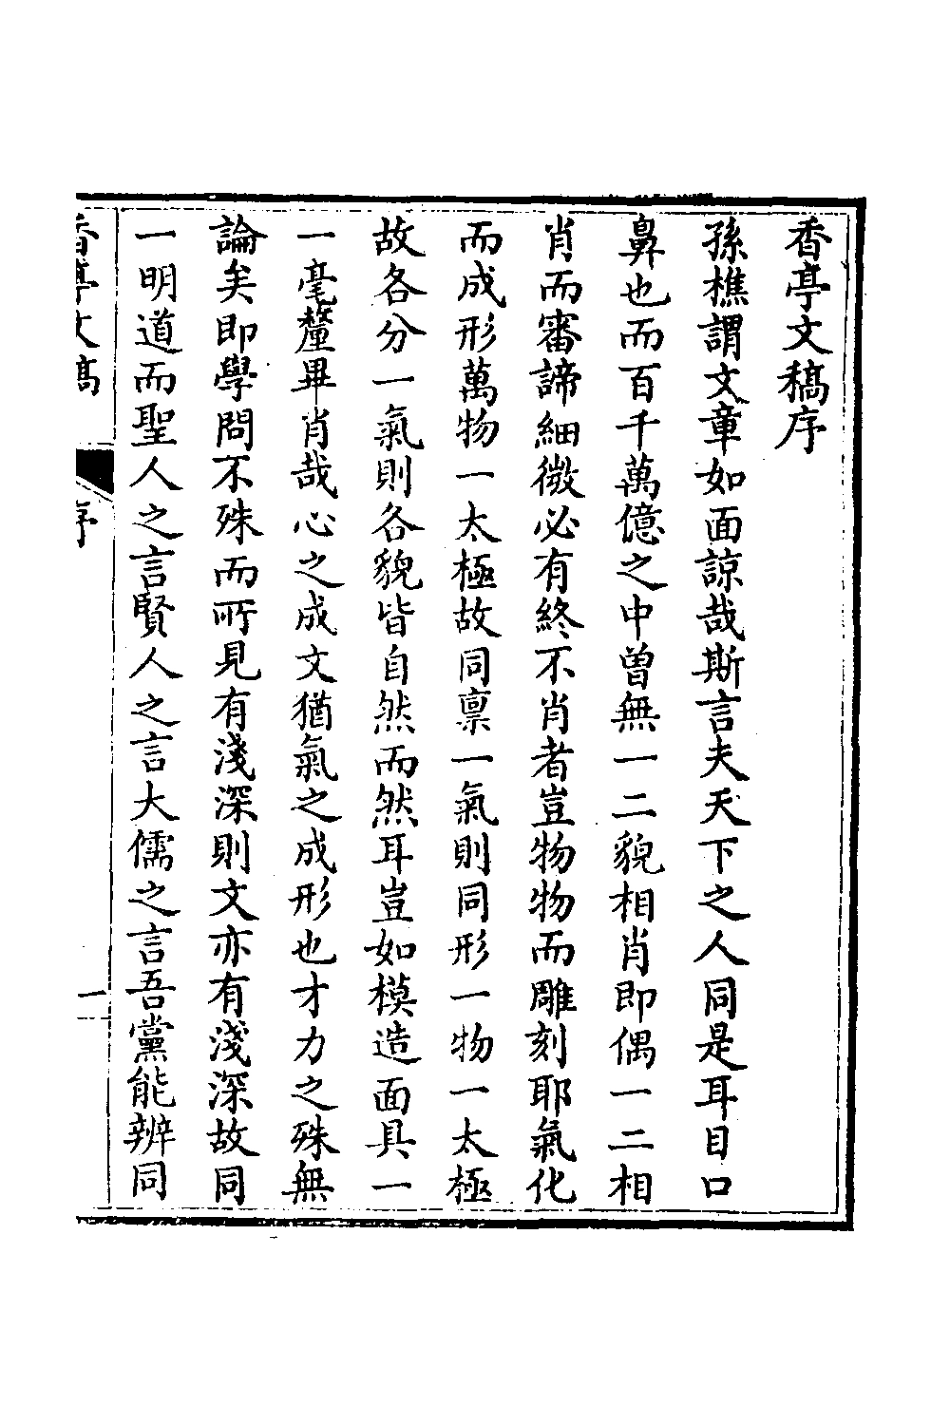 香亭文稿序
孫樵謂文章如面諒哉斯言夫天下之人同是耳目口
鼻也而百千萬億之中曾無一二貌相肖即偶一二相
肖而審諦細微必有終不肖者豈物物而雕刻耶氣化
而成形萬物一太極故同稟一氣則同形一物一太極
故各分一氣則各貌皆自然而然耳豈如模造面具一
一毫釐畢肖哉心之成文猶氣之成形也才力之殊無
論矣即學問不殊而所見有淺深則文亦有淺深故同
一明道而聖人之言賢人之言大儒之言吾黨能辨同
香亭文稿 序 一